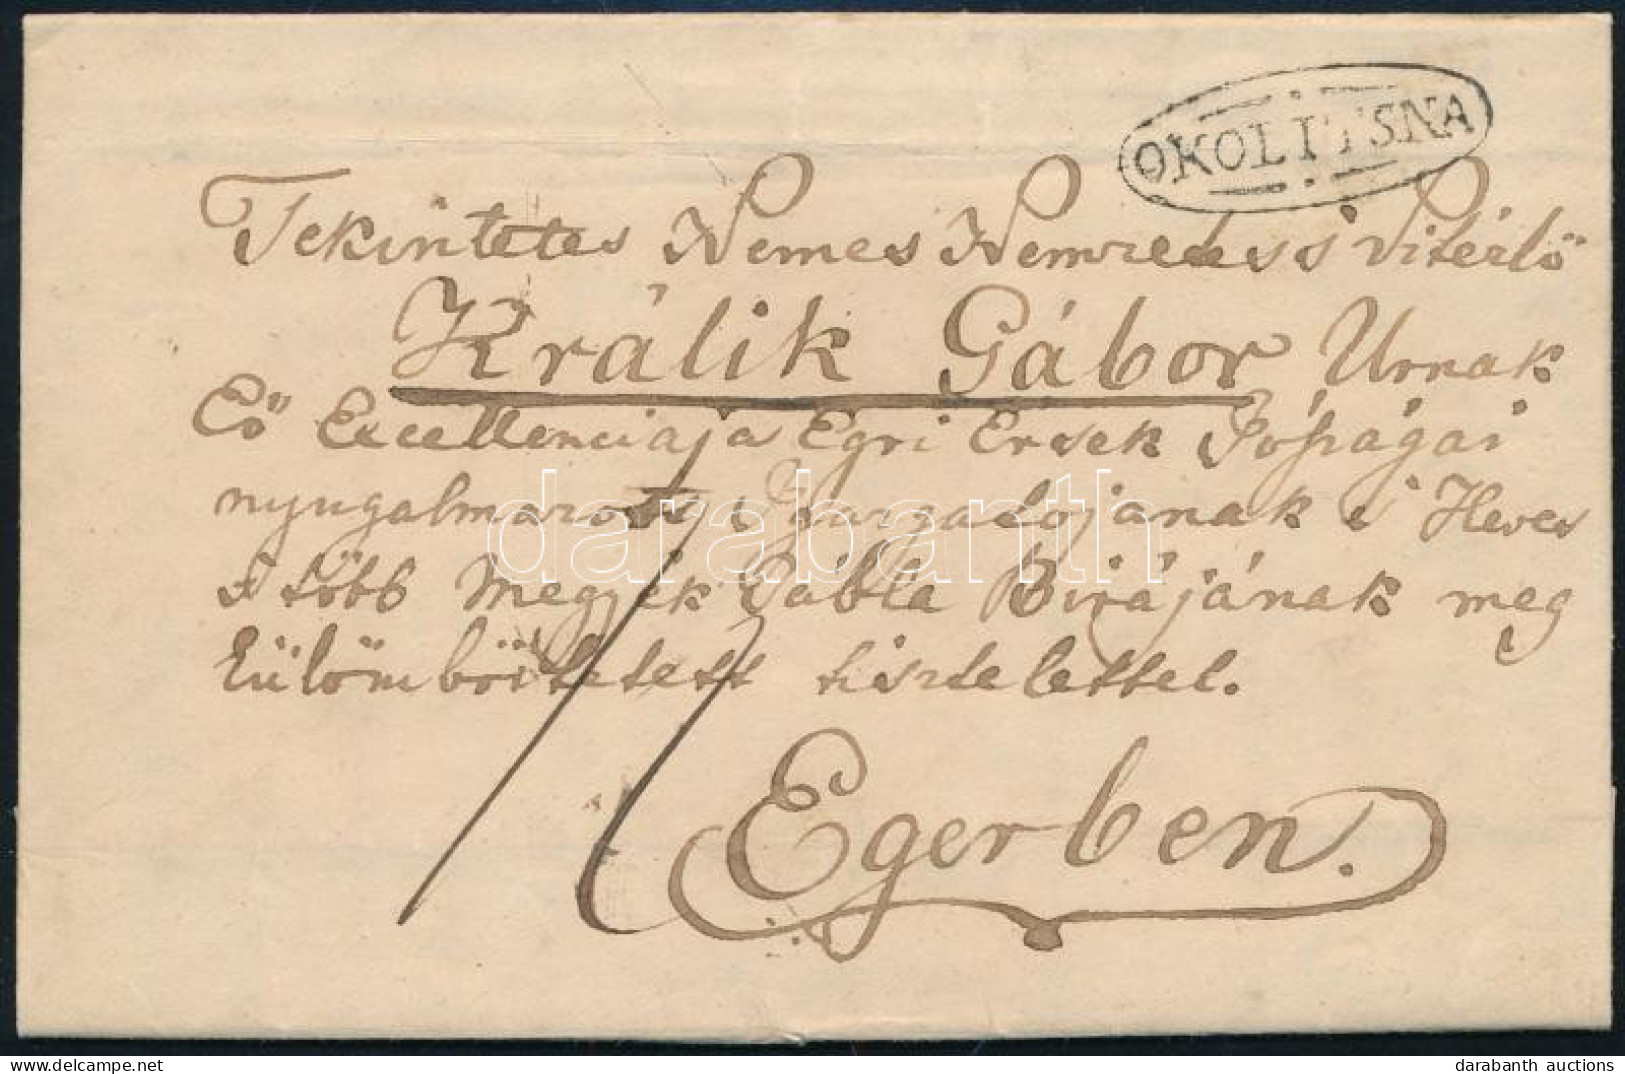 OKOLITSNA
Tekintetes Nemes Nemzetes s Vitézlő
Králik Gábor Urnak
Eő Excellenciája Egri Érsek
nyugalmazott Igazgatójának s Heves
s több Megyék Tábla Birájának meg
külömböztetett tisztelettel.
Egerben.
darabanth
darabanth auctions